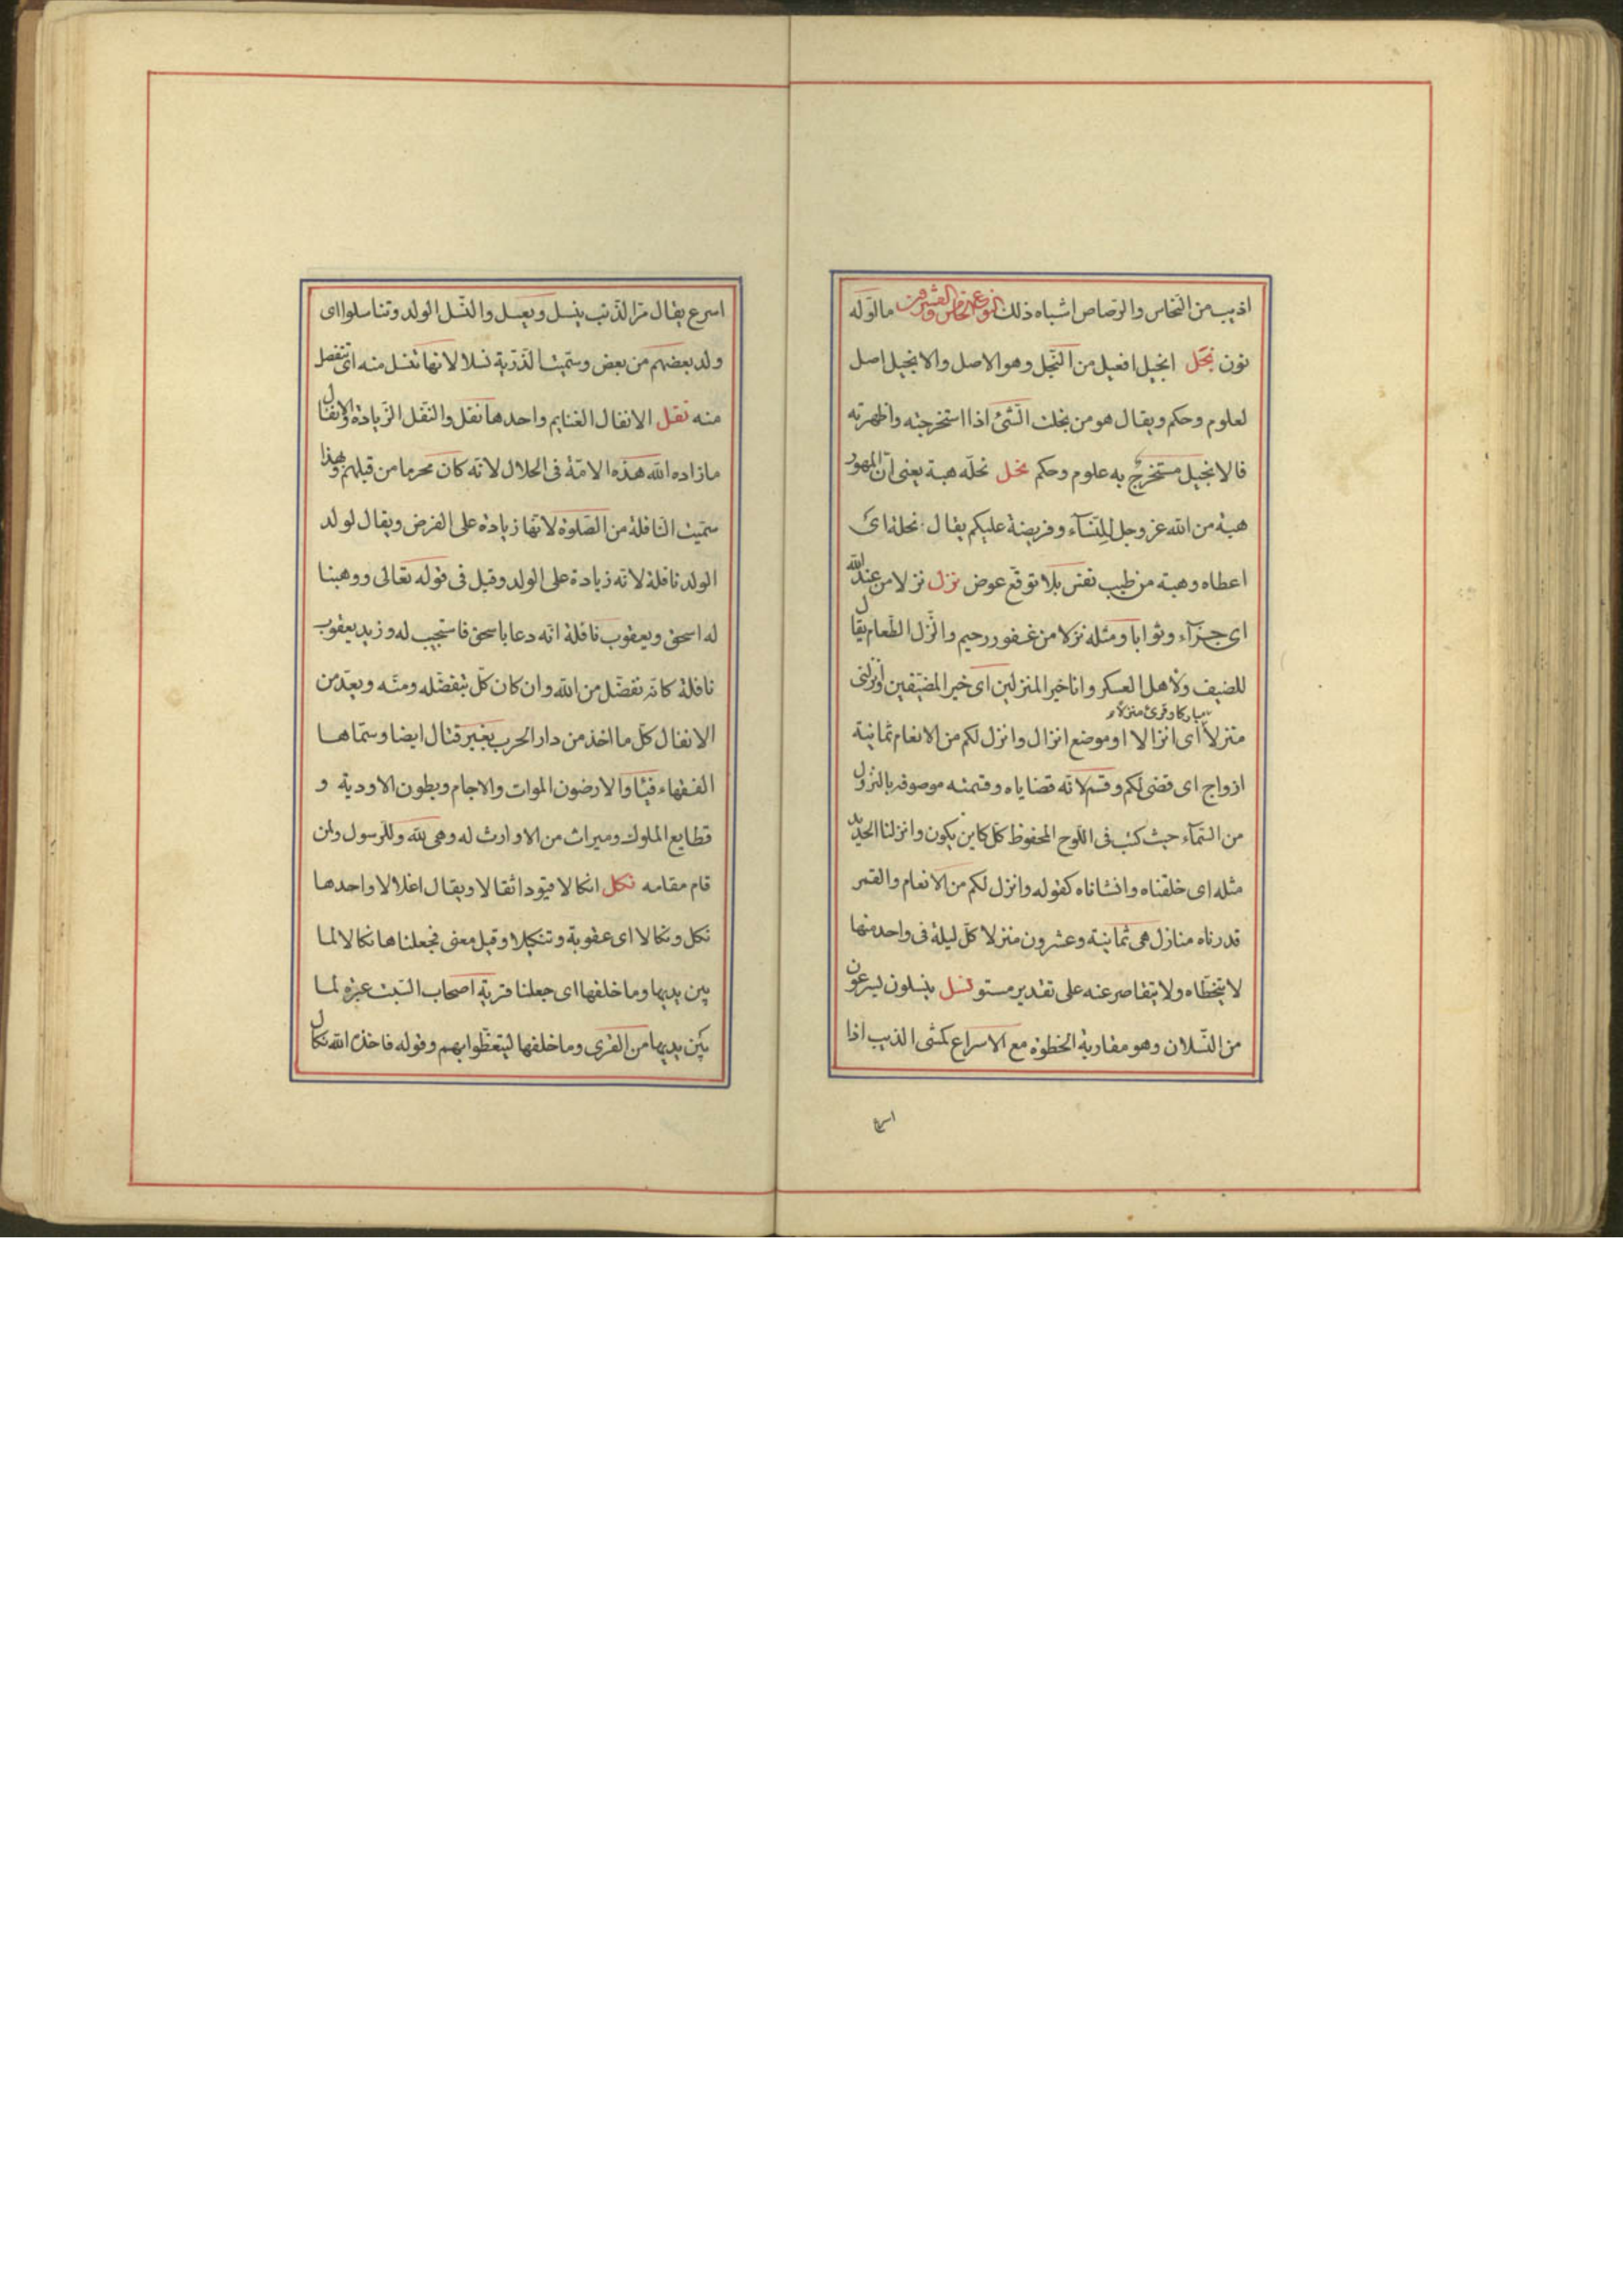 اذيب من النّحاس والرّصاص اشباه ذلك النوع الخامس والعشرون ما اوّله
نون نجل انجيل افعيل من النّجل وهو الاصل والانجيل اصل
لعلوم وحكم ويقال هو من نجلت الشّئ اذا استخرجته واظهرته
فالانجيل مستخرج به علوم وحكم نحل نحلة هبة يعنى انّ المهور
هبة من الله عز وجل للنّسآء وفريضة عليكم يقال نحلة اى
اعطاه وهبة من طيب نفس بلا توقّع عوض نزل نزلا من عند الله
اى جزآء وثوابا ومثله نزلا من غفور رحيم والنّزل الطّعام يقال
للضيف ولاهل العسكر وانا خير المنزلين اى خير المضيّفين وانزلنى
مباركا وقرئ منزلا
منزلا اى انزالا او موضع انزال وانزل لكم من الانعام ثمانية
ازواج اى قضى لكم وقسم لانّه قضاياه وقسمته موصوفة بالنّزول
من السّمآء حيث كتب فى اللّوح المحفوظ كلّ كاين يكون وانزلنا الحديد
مثله اى خلقناه وانشاناه كقوله وانزل لكم من الانعام والقمر
قدرناه منازل هى ثمانية وعشرون منزلا كلّ ليلة فى واحد منها
لا يتخطّاه ولا يتقاصر عنه على تقدير مستو نسل ينسلون يسرعون
من النّسلان وهو مقاربة الخطوة مع الاسراع كمشى الذيب اذا
اسرع
اسرع يقال مرّ الذّئب ينسل ويعسل والنّسل الولد وتناسلوا اى
ولد بعضهم من بعض وسمّيت الذّرّية نسلا لانّها تنسل منه اى تنفصل
منه نفل الانفال الغنايم واحدها نفل والنّفل الزّيادة والانفال
ما زاده الله هذه الامّة فى الحلال لانّه كان محرما من قبلهم وبهذا
سمّيت النّافلة من الصّلوة لانّها زيادة على الفرض ويقال لولد
الولد نافلة لانّه زيادة على الولد وقيل فى قوله تعالى ووهبنا
له اسحق ويعقوب نافلة انّه دعا باسحق فاستجيب له وزيد يعقوب
نافلة كانّه تفضّل من الله وان كان كلّ بتفضّله ومنّه ويعدّ من
الانفال كلّ ما اخذ من دار الحرب بغير قتال ايضا وسمّاها
الفقهاء فيئا والارضون الموات والاجام وبطون الاودية و
قطايع الملوك وميراث من لا وارث له وهى لله وللرّسول ولمن
قام مقامه نكل انكالا قيودا ثقالا ويقال اغلالا واحدها
نكل ونكالا اى عقوبة وتنكيلا وقيل معنى فجعلناها نكالا لما
بين يديها وما خلفها اى جعلنا قرية اصحاب السّبت عبرة لما
بين يديها من القرى وما خلفها ليتعظّوا بهم وقوله فاخذه الله نكال